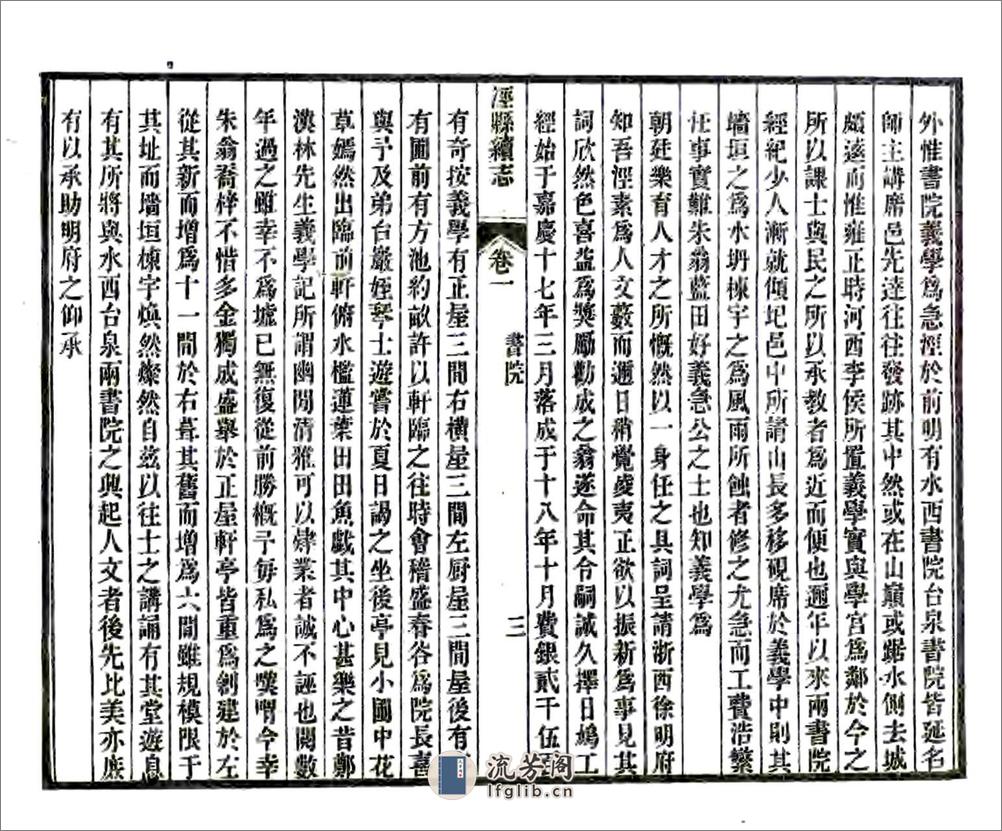 外惟書院義學爲急涇於前明有水西書院台泉書院皆延名
師主講席邑先達往往發跡其中然或在山巔或踞水側去城
頗遠而惟雍正時河西李侯所置義學實與學宮爲鄰於今之
所以課士與民之所以承教者爲近而便也邇年以來兩書院
經紀少人漸就傾圮邑中所請山長多移硯席於義學中則其
墻垣之爲水坍棟宇之爲風雨所蝕者修之尤急而工費浩繁
任事實難朱翁藍田好義急公之士也知義學爲
朝廷樂育人才之所慨然以一身任之具詞呈請浙西徐明府
知吾涇素爲人文藪而邇日稍覺夌夷正欲以振新爲事見其
詞欣然色喜益爲獎勵勸成之翁遂命其令嗣誠久擇日鳩工
經始于嘉慶十七年三月落成于十八年十月費銀貳千伍
涇縣續志 卷一 書院 三
有奇按義學有正屋三間右橫屋三間左厨屋三間屋後有亭
有圃前有方池約畝許以軒臨之往時會稽盛春谷爲院長喜
與予及弟台巖姪琴士遊嘗於夏日謁之坐後亭見小圃中花
草嫣然出臨前軒俯水檻蓮葉田田魚戲其中心甚樂之昔鄭
濮林先生義學記所謂幽閒清雅可以肄業者誠不誣也閱數
年過之雖幸不爲墟已無復從前勝概予每私爲之嘆喟今幸
朱翁喬梓不惜多金獨成盛舉於正屋軒亭皆重爲剏建於左
從其新而增爲十一間於右葺其舊而增爲六間雖規模限于
其址而墻垣棟宇煥然燦然自兹以往士之講誦有其堂遊息
有其所將與水西台泉兩書院之興起人文者後先比美亦庶
有以承助明府之仰承
流芳阁
lfglib.cn